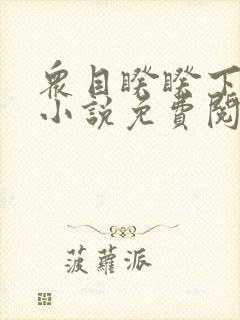 眾目睽睽下
小說免費閱
菠蘿派